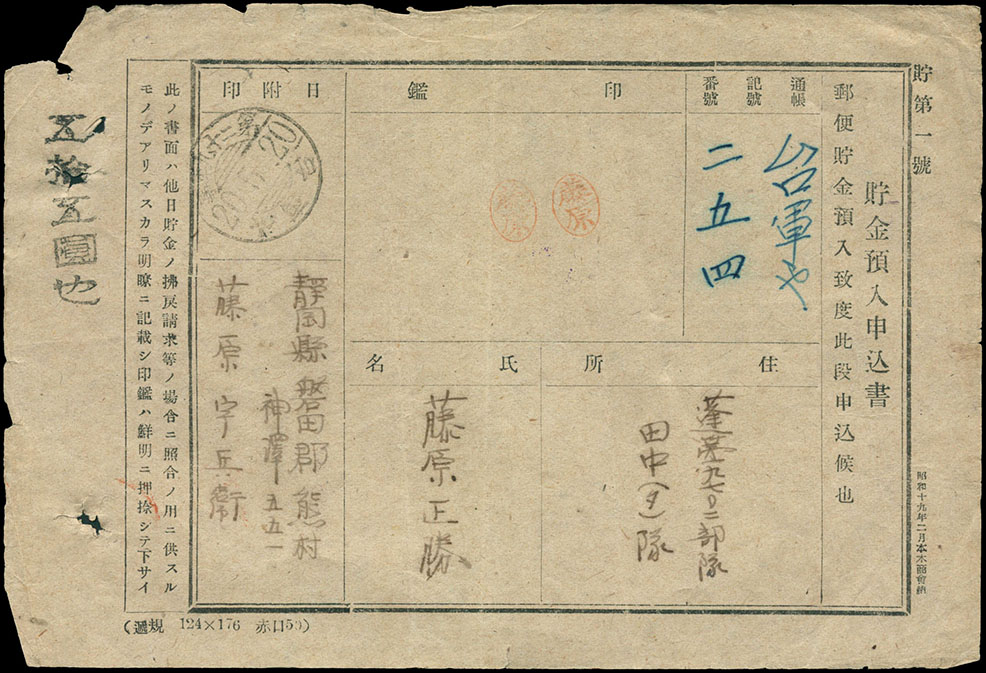 貯第一號
貯金預入申込書
郵便貯金預入致度此段申込候也
昭和十九年二月
通帳
記號
番號
台軍や
二五四
印
鑑
藤原
藤原
日附印
20
20
住
所
蓬莱九七〇二部隊
田中(タ)隊
氏
名
藤原正勝
靜岡縣磐田郡熊村
神澤五五一
藤原宇兵衞
此ノ書面ハ他日貯金ノ拂戾請求等ノ場合ニ照合ノ用ニ供スル
モノデアリマスカラ明瞭ニ記載シ印鑑ハ鮮明ニ押捺シテ下サイ
五拾五圓也
(遞規 124×176 赤口50)